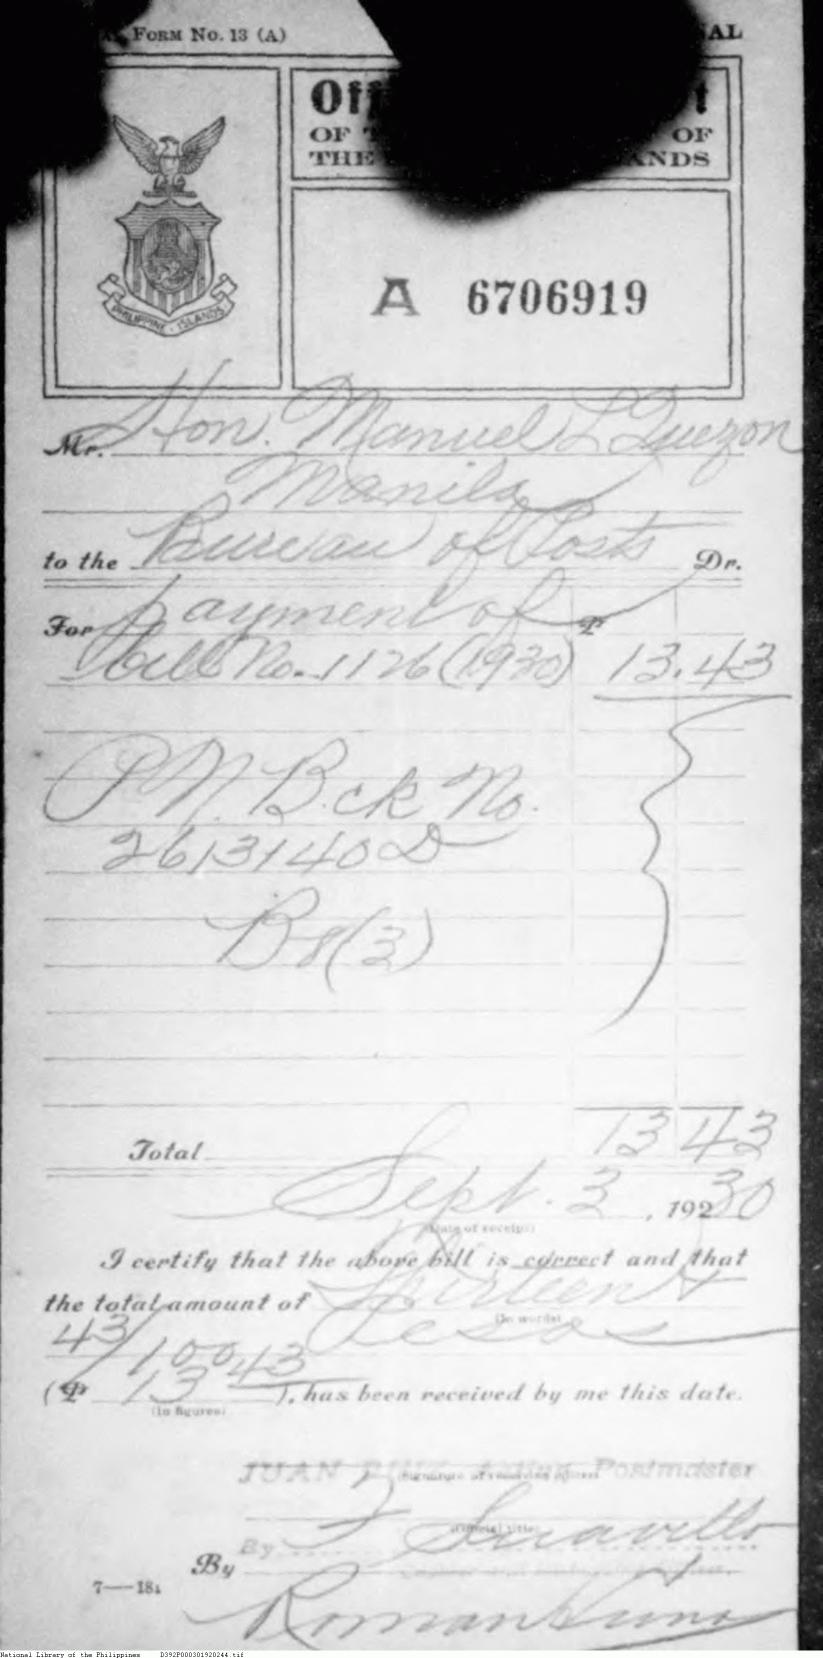 Form No. 13 (A)
OF
OF
THE
A 6706919
PHILIPPINE ISLANDS
Mr. Hon. Manuel L Quezon
Manila
to the Bureau of Posts Dr.
For payment of ₱
bill No. 1126 (1930) 13.43
P.N.B. ck No.
2613140 D
B8(3)
Total 13 43
Sept. 3, 19230
(Date of receipt)
I certify that the above bill is correct and that
the total amount of Thirteen &
(In words)
43/100 Pesos
(₱ 13 43), has been received by me this date.
(In figures)
JUAN RUIZ Acting Postmaster
(Signature of receiving officer)
(Official title)
By
By
7—184
Roman
National Library of the Philippines D392P000301920244.tif